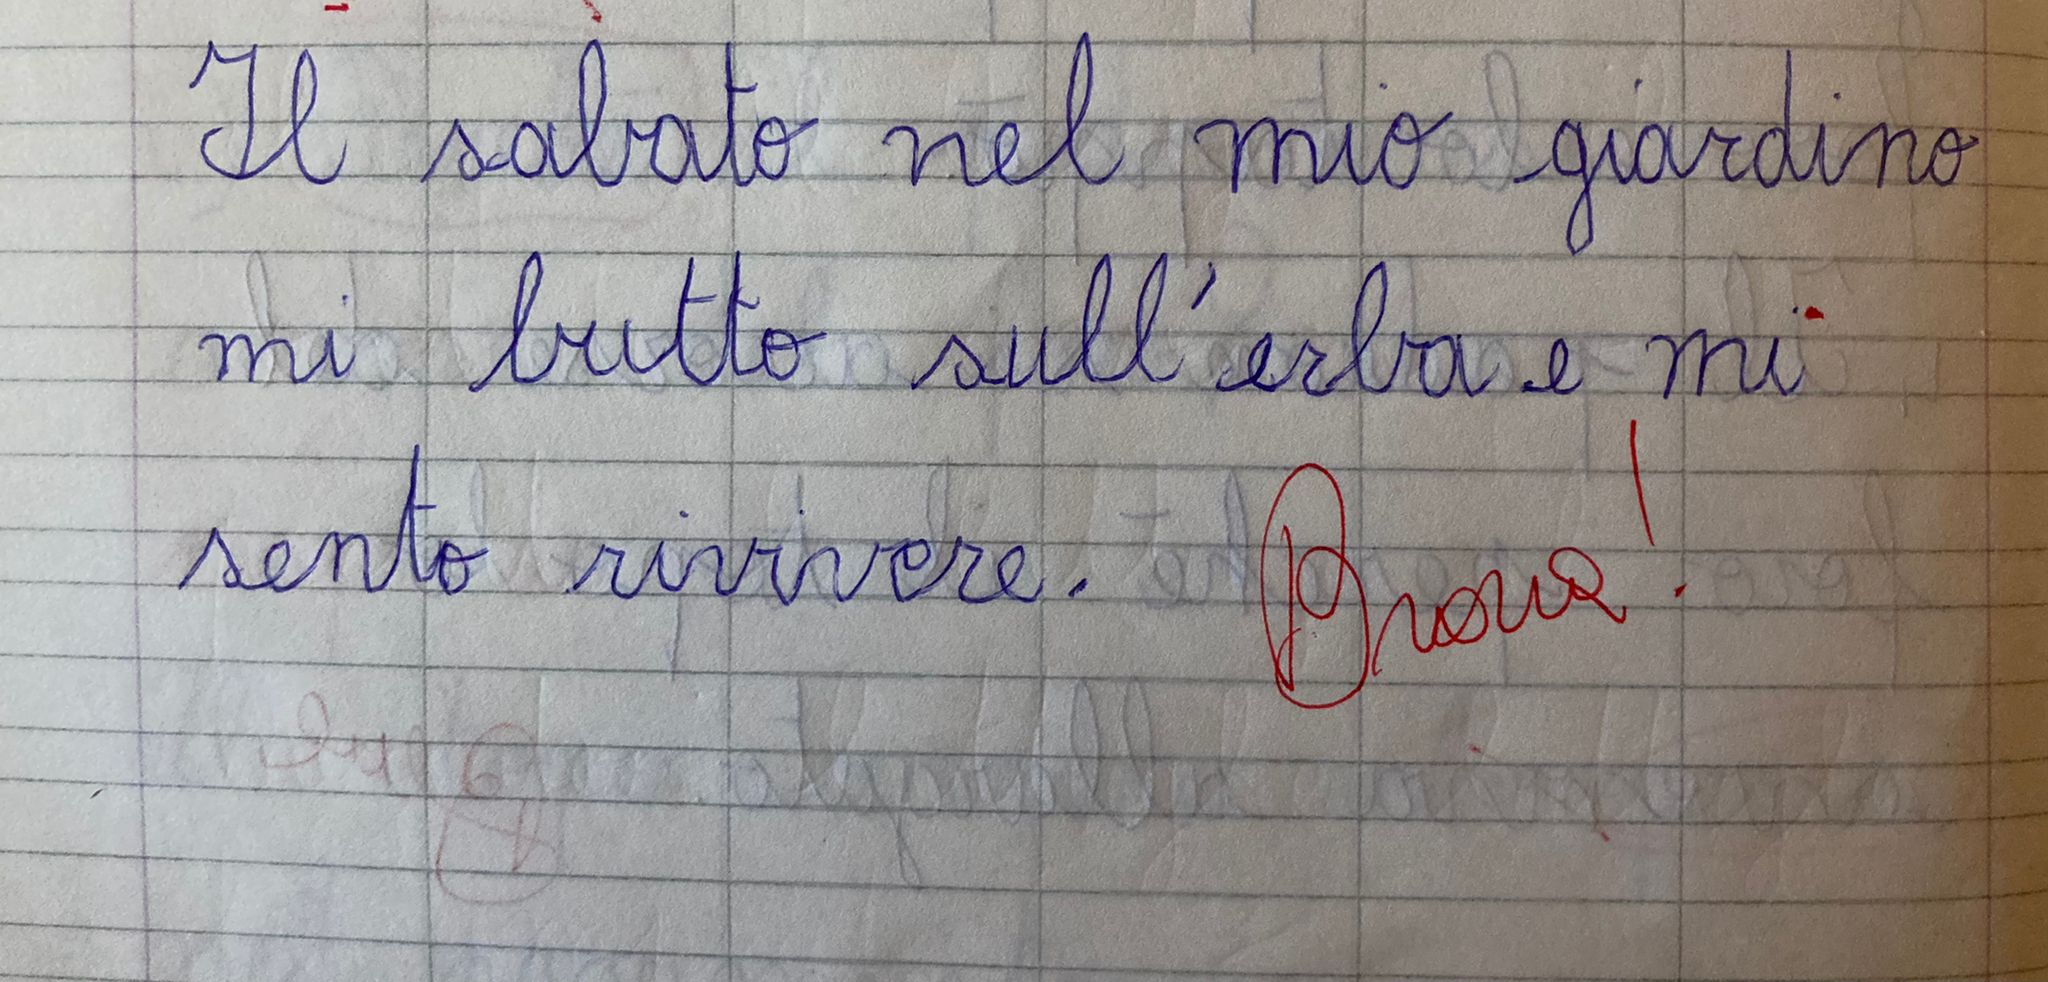 Il sabato nel mio giardino
mi butto sull'erba e mi
sento rivivere. Brava!